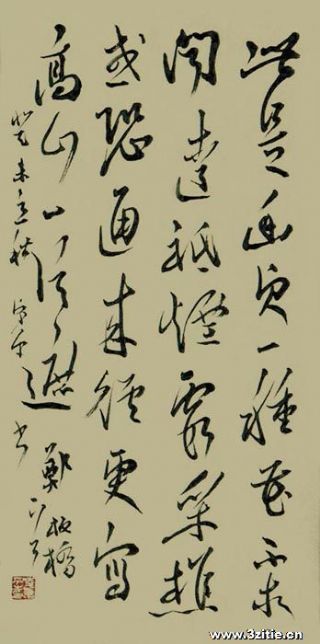 此是幽貞一種花不求
聞達祇煙霞采樵
或恐通來徑更寫
高山一片遮 鄭板橋
癸未 秋 书
www.3zitie.cn